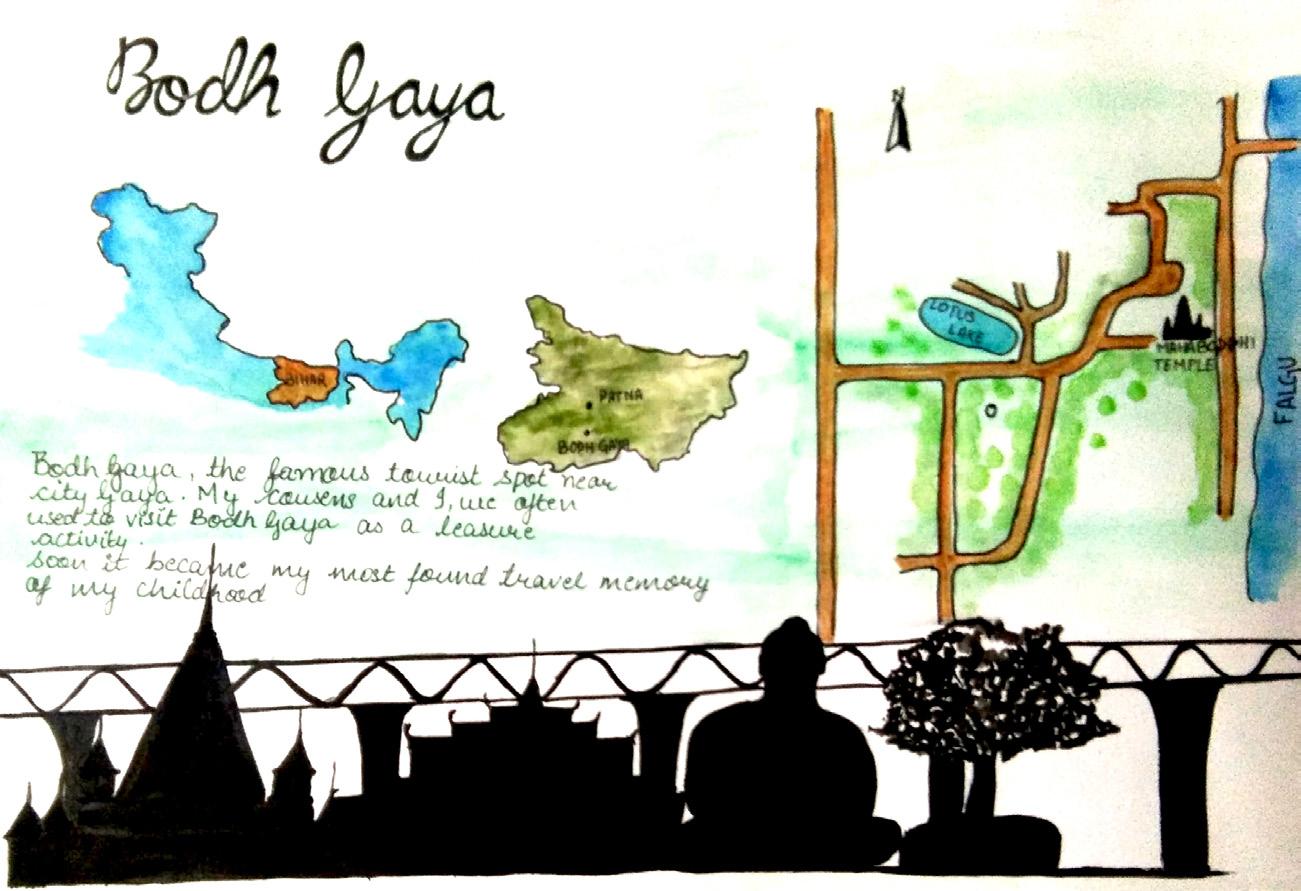 Bodh Gaya
N
LOTUS
LAKE
MAHABODHI
TEMPLE
FALGU
BIHAR
PATNA
BODH GAYA
Bodh Gaya, the famous tourist spot near
city Gaya. My cousens and I, we often
used to visit Bodh Gaya as a leasure
activity.
soon it became my most found travel memory
of my childhood